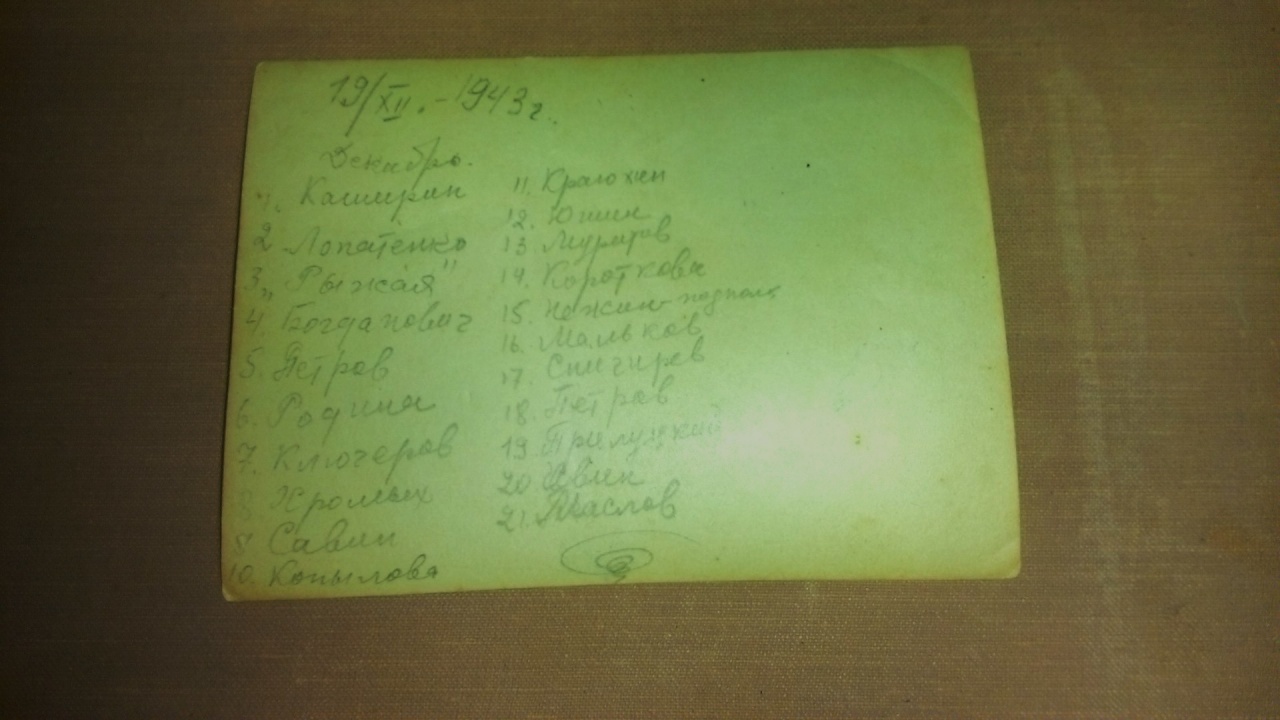 19/XII.-1943г.
Декабрь.
1. Каширин
2 Лопатенко
3 „Рыжая"
4. Богданович
5. Петров
6. Родина
7. Ключеров
8 Хромых
9. Савин
10. Копылова
11. Краюхин
12. Юшин
13. Муратов
14. Короткова
15. Нежин-подполк
16. Мальков
17. Снигирев
18. Петров
19 Прилуцкий
20 Явин
21. Маслов